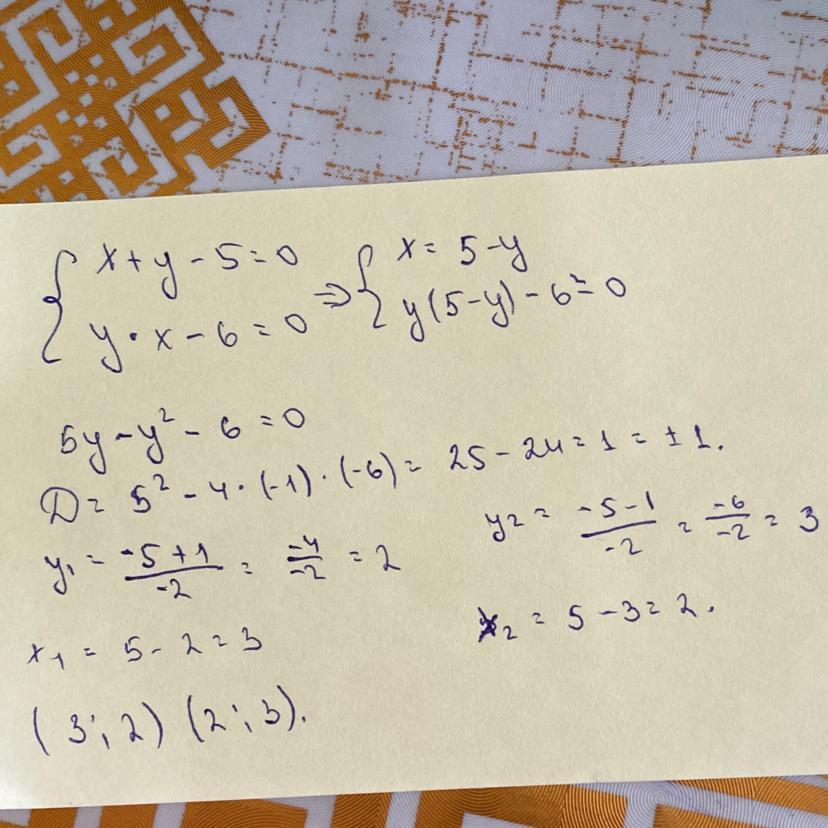 { x + y - 5 = 0 => { x = 5 - y
{ y · x - 6 = 0 { y(5 - y) - 6 = 0
5y - y² - 6 = 0
D = 5² - 4 · (-1) · (-6) = 25 - 24 = 1 = ±1.
y₁ = (-5 + 1)/(-2) = (-4)/(-2) = 2 y₂ = (-5 - 1)/(-2) = (-6)/(-2) = 3
x₁ = 5 - 2 = 3 x₂ = 5 - 3 = 2.
(3; 2) (2; 3).